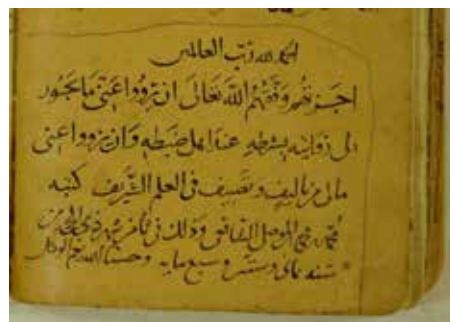 الحمد لله رب العالمين
اجزتهم وفقهم الله تعالى ان يرووا عني ما يجوز
لي روايته بشرطه عند اهل ضبطه وان يرووا عني
مالي من تاليف وتصنيف في العلم الشريف كتبه
محمد الشافعي وذلك في شهر ذي الحجة
سنة ثمان وستين وسبع مايه وحسبنا الله ونعم الوكيل